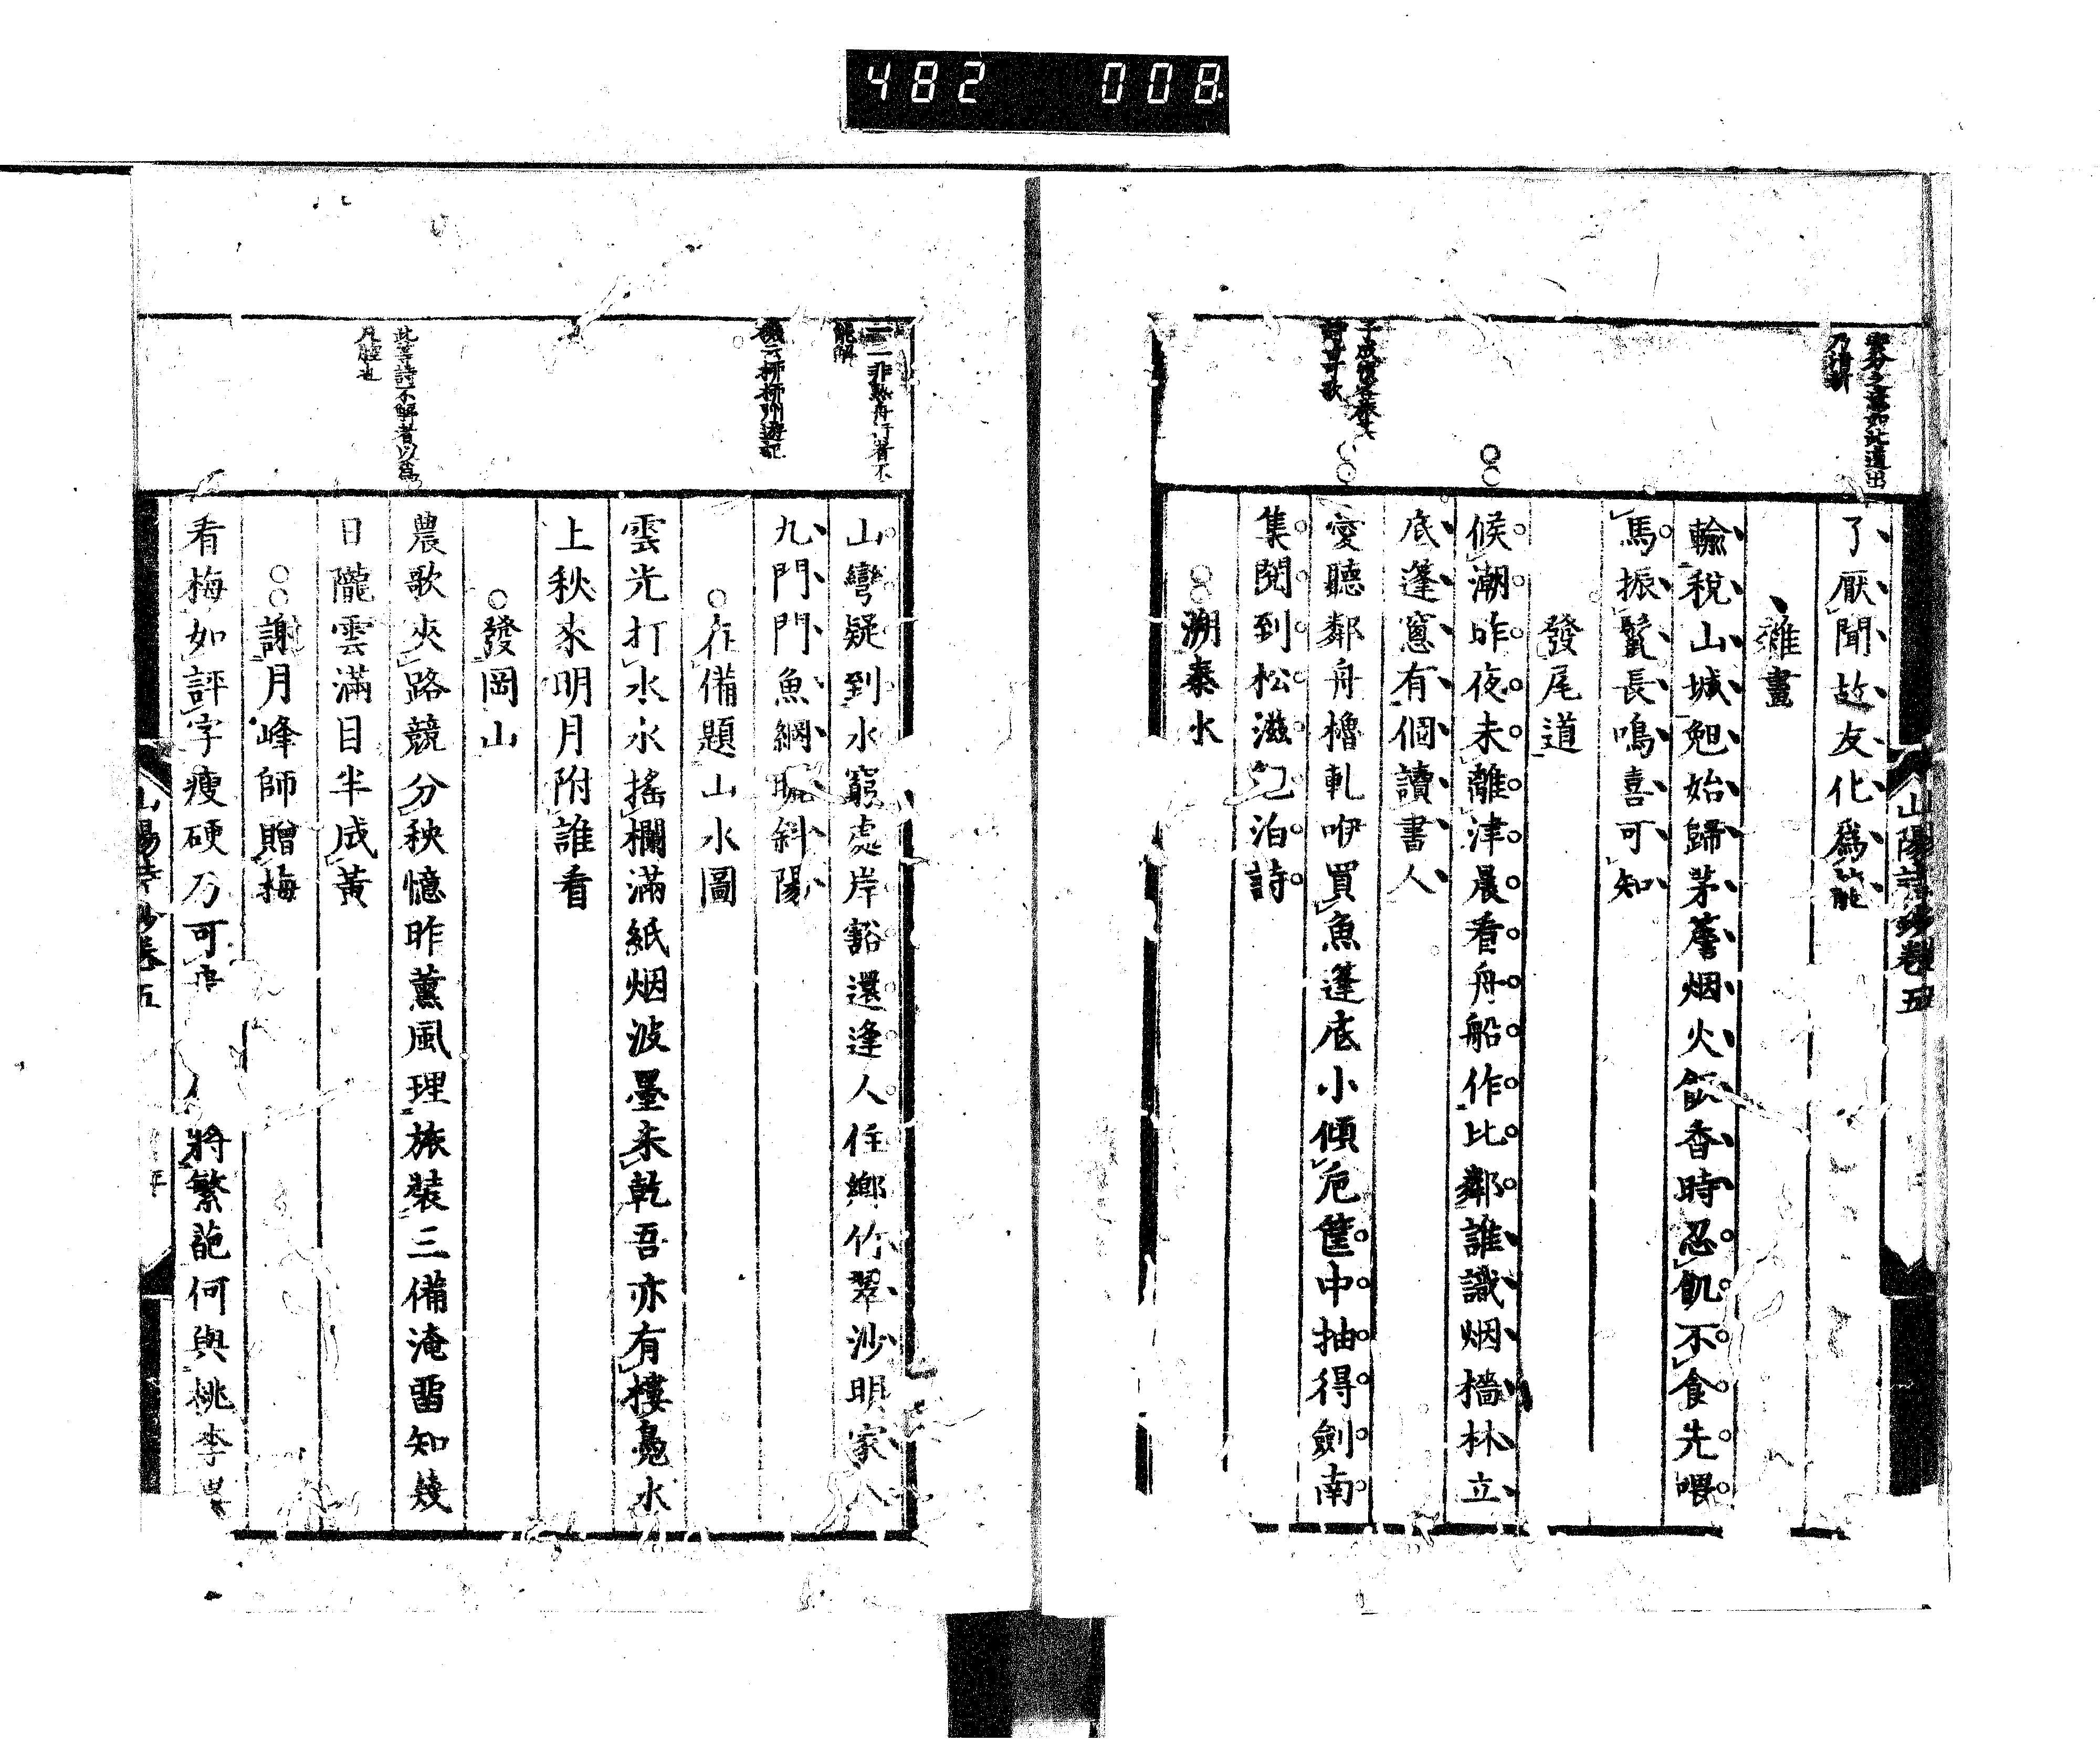 482 008
山陽詩鈔卷五
了厭聞故友化爲龍
雜畫
輸稅山城晚始歸茅簷烟火飯香時忍飢不食先喂
馬振鬣長鳴喜可知
發尾道
候潮昨夜未離津晨看舟船作比鄰誰識烟檣林立
底蓬窓有個讀書人
愛聽鄰舟櫓軋咿買魚蓬底小傾卮篋中抽得劍南
集閱到松滋泊詩
溯泰水
子成
詩可歌
一二非熟舟行者不
能解
山彎疑到水窮處岸豁還逢人住鄉竹翠沙明家八
九門門魚網曬斜陽
云柳柳州遊記
在備題山水圖
雲光打水水搖欄滿紙烟波墨未乾吾亦有樓鳧水
上秋來明月附誰看
發岡山
農歌夾路競分秧憶昨薰風理旅裝三備淹留知幾
日隴雲滿目半成黃
此等詩不解者以爲
凡腔也
謝月峰師贈梅
看梅如評字瘦硬乃可
將繁葩何與桃李
山陽詩鈔卷五